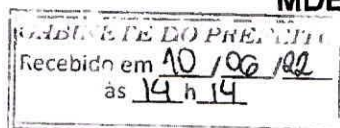 MDB
GABINETE DO PREFEITO
Recebido em 10 / 06 / 22
às 14 h 14